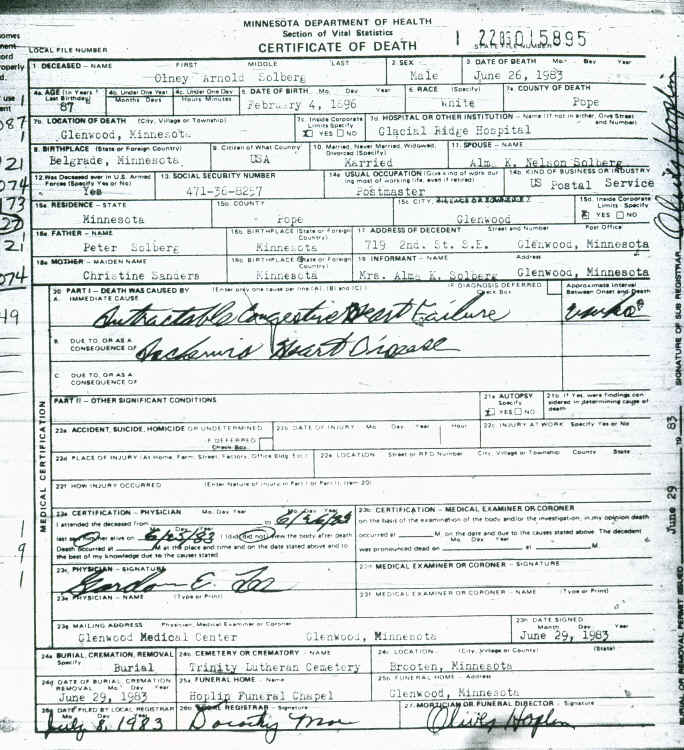 MINNESOTA DEPARTMENT OF HEALTH
Section of Vital Statistics
CERTIFICATE OF DEATH
LOCAL FILE NUMBER
STATE FILE NUMBER
015895
1 DECEASED – NAME FIRST MIDDLE LAST
Olney Arnold Solberg
2 SEX
Male
3 DATE OF DEATH Mo. Day Year
June 26, 1983
4a. AGE (In Years Last Birthday)
87
4b. Under One Year
Months Days
4c. Under One Day
Hours Minutes
5 DATE OF BIRTH Mo. Day Year
February 4, 1896
6 RACE (Specify)
White
7a COUNTY OF DEATH
Pope
7b LOCATION OF DEATH (City, Village or Township)
Glenwood, Minnesota
7c Inside Corporate Limits Specify
YES NO
7d HOSPITAL OR OTHER INSTITUTION – Name (If not in either, Give Street and Number)
Glacial Ridge Hospital
8 BIRTHPLACE (State or Foreign Country)
Belgrade, Minnesota
9 Citizen of What Country
USA
10. Married, Never Married, Widowed, Divorced (Specify)
Married
11 SPOUSE – NAME
Alma K. Nelson Solberg
12. Was Deceased ever in U.S. Armed Forces (Specify Yes or No)
Yes
13 SOCIAL SECURITY NUMBER
471-36-8257
14a USUAL OCCUPATION (Give kind of work during most of working life, even if retired)
Postmaster
14b KIND OF BUSINESS OR INDUSTRY
US Postal Service
15a RESIDENCE – STATE
Minnesota
15b COUNTY
Pope
15c CITY, VILLAGE OR TOWNSHIP
Glenwood
15d. Inside Corporate Limits Specify
YES NO
16a FATHER – NAME
Peter Solberg
16b BIRTHPLACE (State or Foreign Country)
Minnesota
17 ADDRESS OF DECEDENT Street and Number Post Office
719 2nd. St. S.E. Glenwood, Minnesota
18a MOTHER – MAIDEN NAME
Christine Sanders
18b BIRTHPLACE (State or Foreign Country)
Minnesota
19 INFORMANT – NAME Address
Mrs. Alma K. Solberg Glenwood, Minnesota
20 PART I – DEATH WAS CAUSED BY (Enter only one cause per line (A), (B) and (C))
IF DIAGNOSIS DEFERRED Check Box
Approximate Interval Between Onset and Death
A. IMMEDIATE CAUSE
Intractable Congestive Heart Failure
B DUE TO, OR AS A CONSEQUENCE OF
Ischemic Heart Disease
C DUE TO, OR AS A CONSEQUENCE OF
PART II – OTHER SIGNIFICANT CONDITIONS
21a AUTOPSY Specify
YES NO
21b If Yes, were findings considered in determining cause of death
MEDICAL CERTIFICATION
22a ACCIDENT, SUICIDE, HOMICIDE OR UNDETERMINED
IF DEFERRED Check Box
22b DATE OF INJURY Mo. Day Year Hour
22c INJURY AT WORK Specify Yes or No
22d PLACE OF INJURY (At Home, Farm, Street, Factory, Office Bldg. Etc.)
22e LOCATION Street or RFD Number City, Village or Township County State
22f HOW INJURY OCCURRED (Enter Nature of Injury in Part I or Part II, Item 20)
23a CERTIFICATION – PHYSICIAN Mo. Day Year Mo. Day Year
I attended the deceased from to 6/26/83
last saw him/her alive on 6/25/83 I (did)(did not) view the body after death
Death occurred at M at the place and time and on the date stated above and to
the best of my knowledge due to the causes stated
23b CERTIFICATION – MEDICAL EXAMINER OR CORONER
on the basis of the examination of the body and/or the investigation, in my opinion death
occurred at M. on the date and due to the causes stated above. The decedent
Mo. Day Year
was pronounced dead on at M.
23c. PHYSICIAN – SIGNATURE
Gordon E. Lee
23d MEDICAL EXAMINER OR CORONER – SIGNATURE
23e PHYSICIAN – NAME (Type or Print)
23f MEDICAL EXAMINER OR CORONER – NAME (Type or Print)
23g MAILING ADDRESS Physician, Medical Examiner or Coroner
Glenwood Medical Center Glenwood, Minnesota
23h DATE SIGNED Month Day Year
June 29, 1983
24a BURIAL, CREMATION, REMOVAL Specify
Burial
24b CEMETERY OR CREMATORY – NAME
Trinity Lutheran Cemetery
24c LOCATION (City, Village or County) (State)
Brooten, Minnesota
24d DATE OF BURIAL, CREMATION REMOVAL Mo. Day Year
June 29, 1983
25a FUNERAL HOME – Name
Hoplin Funeral Chapel
25b FUNERAL HOME – Address
Glenwood, Minnesota
26a DATE FILED BY LOCAL REGISTRAR Mo. Day Year
July 8, 1983
26b LOCAL REGISTRAR – Signature
Dorothy
27. MORTICIAN OR FUNERAL DIRECTOR – Signature
Oliver Hoplin
BURIAL OR REMOVAL PERMIT ISSUED June 29 19 83 SIGNATURE OF SUB REGISTRAR Oliver Hoplin